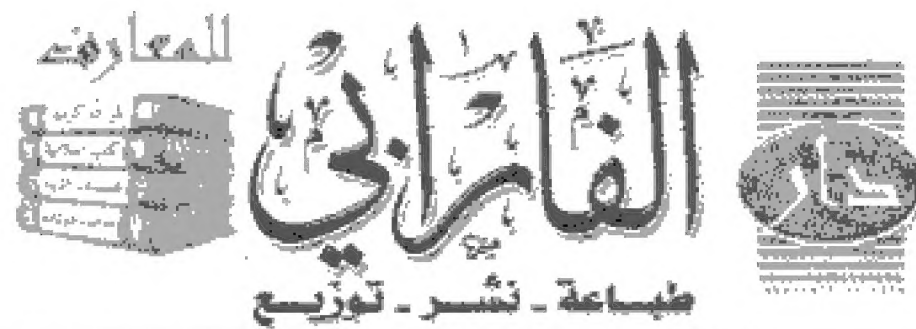 دار
الفارابي
للمعارف
طباعة - نشر - توزيع